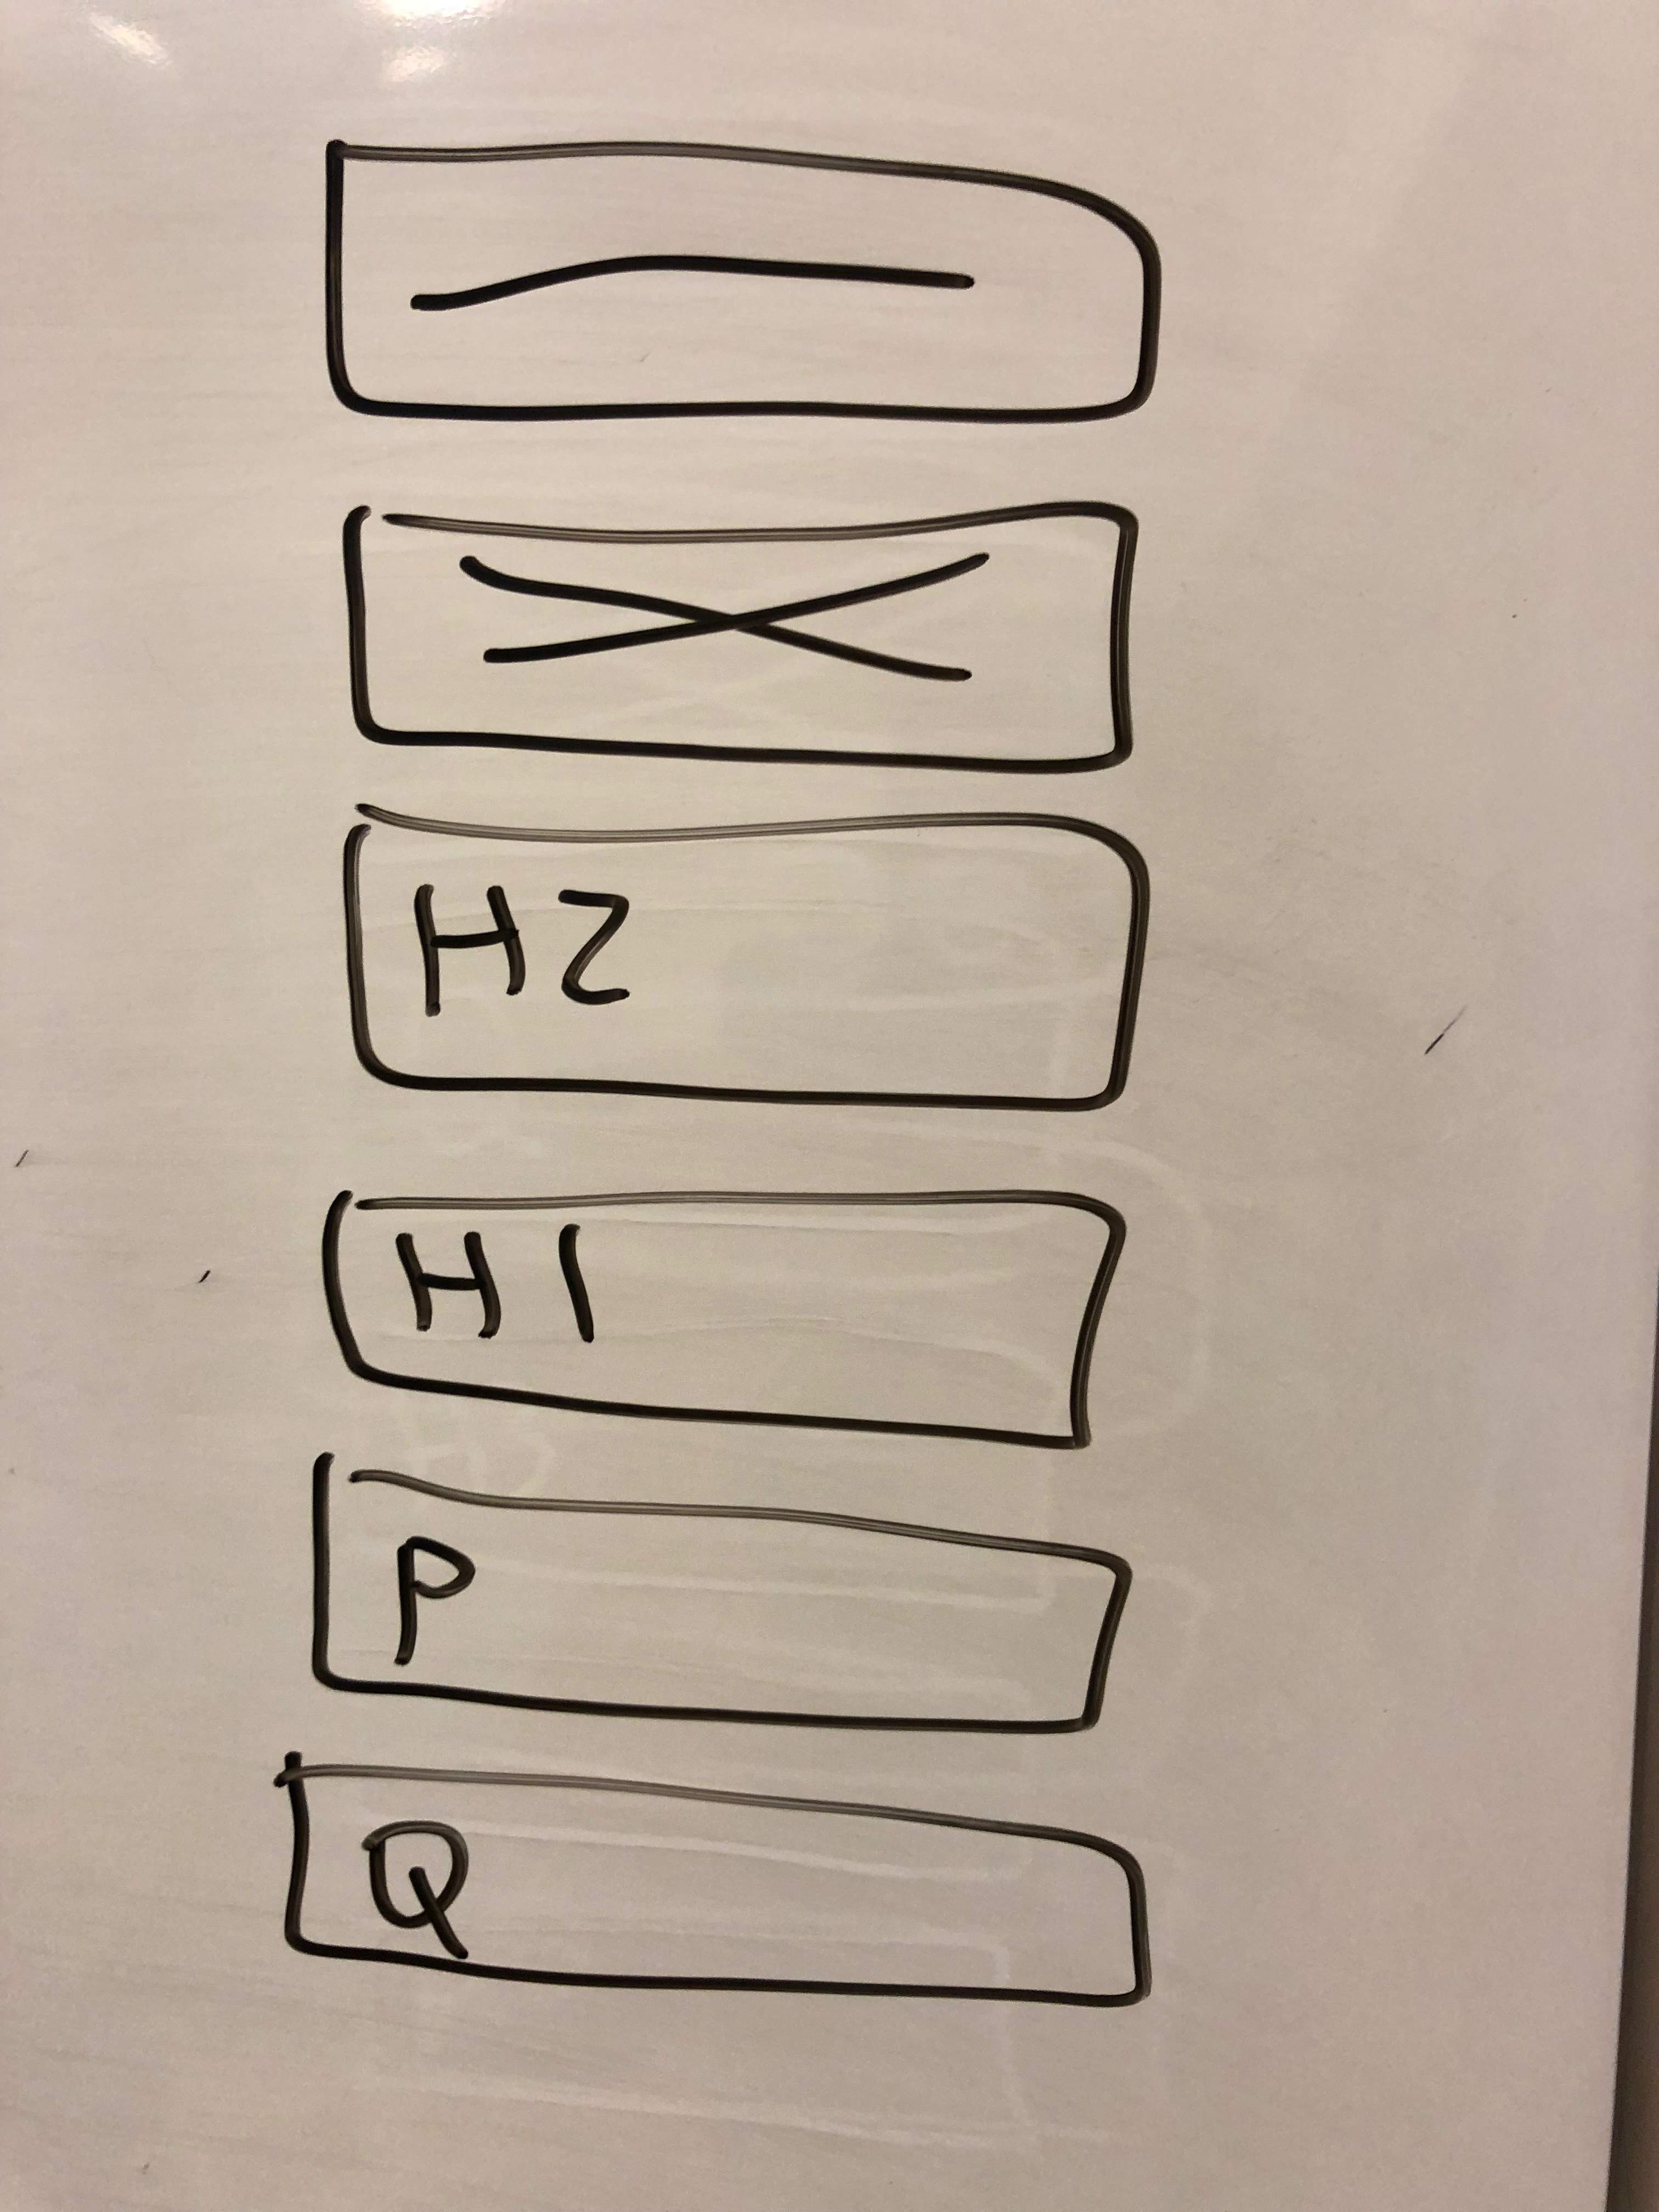 H2
H1
P
Q